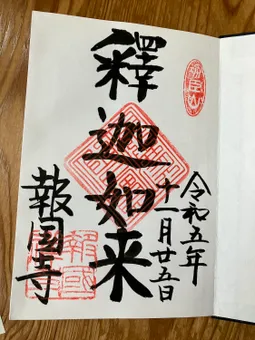 令和五年
十一月廿五日
釋迦如来
報国寺
報國